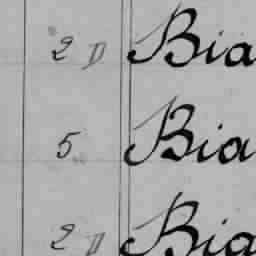 2 D Bia
5 Bia
2 D Bia